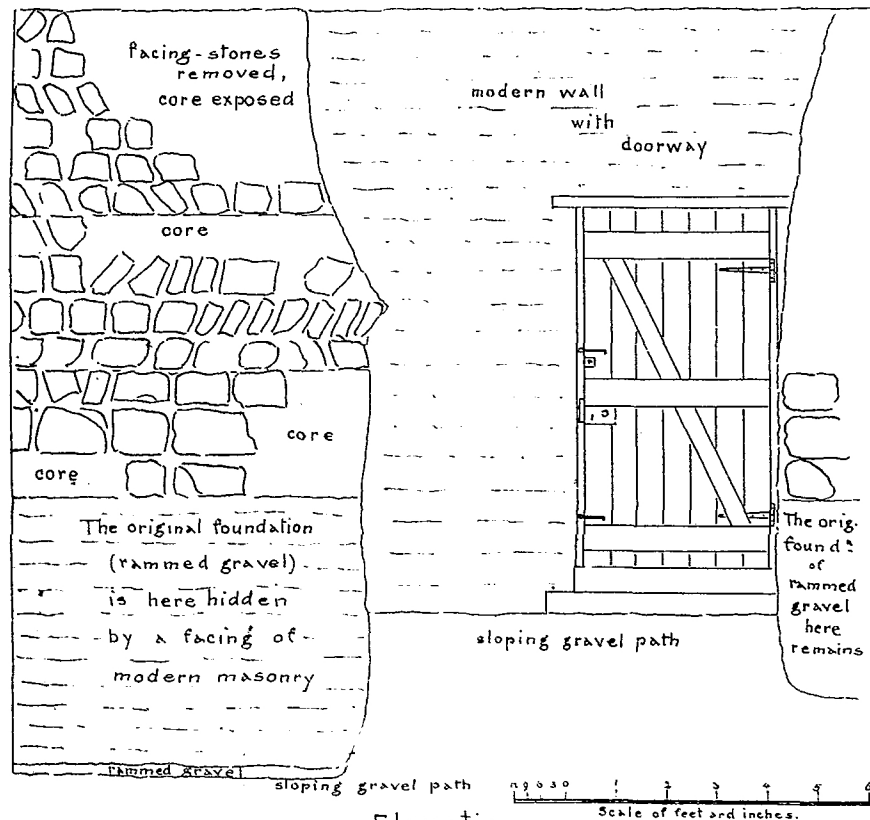 facing-stones
removed,
core exposed
modern wall
with
doorway
core
core
core
The original foundation
(rammed gravel)
is here hidden
by a facing of
modern masonry
rammed gravel
The orig.
foundn.
of
rammed
gravel
here
remains
sloping gravel path
sloping gravel path
12 9 6 3 0 1 2 3 4 5 6
Scale of feet and inches.